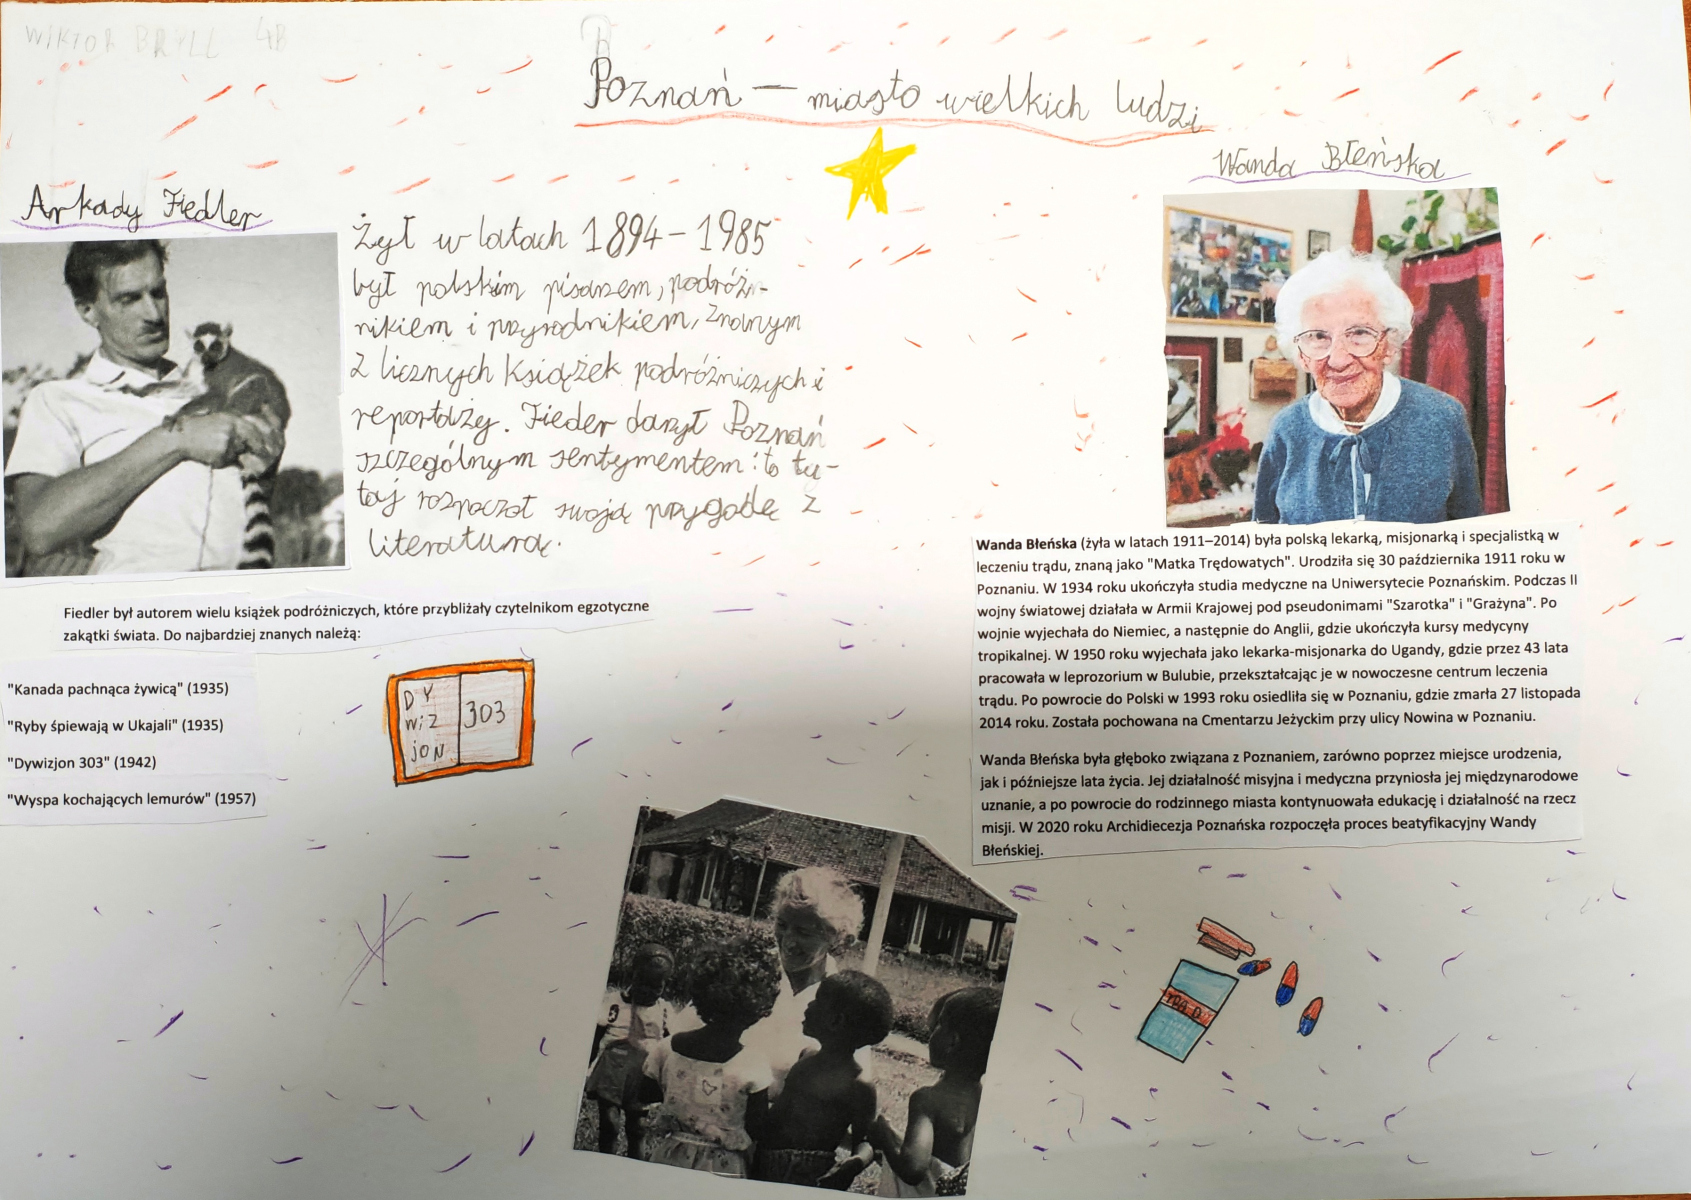 WIKTOR BRYLL 4B
Poznań – miasto wielkich ludzi
Arkady Fiedler
Żył w latach 1894–1985
był polskim pisarzem, podróż-
nikiem i przyrodnikiem, znanym
z licznych książek podróżniczych i
reportaży. Fieder darzył Poznań
szczególnym sentymentem: to tu-
taj rozpoczął swoją przygodę z
literaturą.
Fiedler był autorem wielu książek podróżniczych, które przybliżały czytelnikom egzotyczne
zakątki świata. Do najbardziej znanych należą:
"Kanada pachnąca żywicą" (1935)
"Ryby śpiewają w Ukajali" (1935)
"Dywizjon 303" (1942)
"Wyspa kochających lemurów" (1957)
DY
WiZ
jON
303
Wanda Błeńska
Wanda Błeńska (żyła w latach 1911–2014) była polską lekarką, misjonarką i specjalistką w
leczeniu trądu, znaną jako "Matka Trędowatych". Urodziła się 30 października 1911 roku w
Poznaniu. W 1934 roku ukończyła studia medyczne na Uniwersytecie Poznańskim. Podczas II
wojny światowej działała w Armii Krajowej pod pseudonimami "Szarotka" i "Grażyna". Po
wojnie wyjechała do Niemiec, a następnie do Anglii, gdzie ukończyła kursy medycyny
tropikalnej. W 1950 roku wyjechała jako lekarka-misjonarka do Ugandy, gdzie przez 43 lata
pracowała w leprozorium w Bulubie, przekształcając je w nowoczesne centrum leczenia
trądu. Po powrocie do Polski w 1993 roku osiedliła się w Poznaniu, gdzie zmarła 27 listopada
2014 roku. Została pochowana na Cmentarzu Jeżyckim przy ulicy Nowina w Poznaniu.
Wanda Błeńska była głęboko związana z Poznaniem, zarówno poprzez miejsce urodzenia,
jak i późniejsze lata życia. Jej działalność misyjna i medyczna przyniosła jej międzynarodowe
uznanie, a po powrocie do rodzinnego miasta kontynuowała edukację i działalność na rzecz
misji. W 2020 roku Archidiecezja Poznańska rozpoczęła proces beatyfikacyjny Wandy
Błeńskiej.